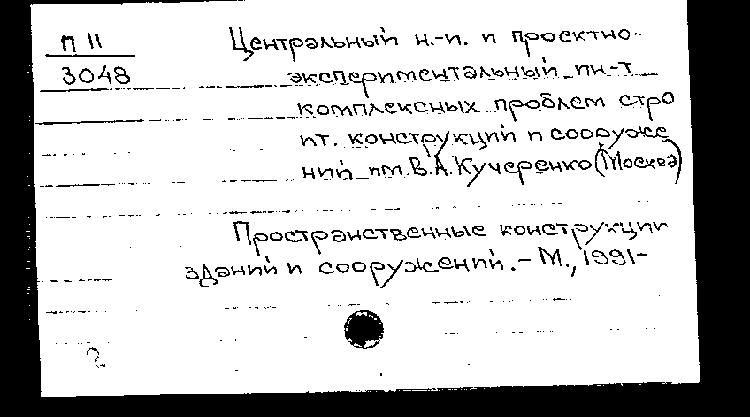 П 11
3048
Центральный н.-и. и проектно-
экспериментальный ин-т
комплексных проблем стро
ит. конструкций и сооруже
ний им. В.А. Кучеренко (Москва)
Пространственные конструкции
зданий и сооружений. - М., 1991-
2